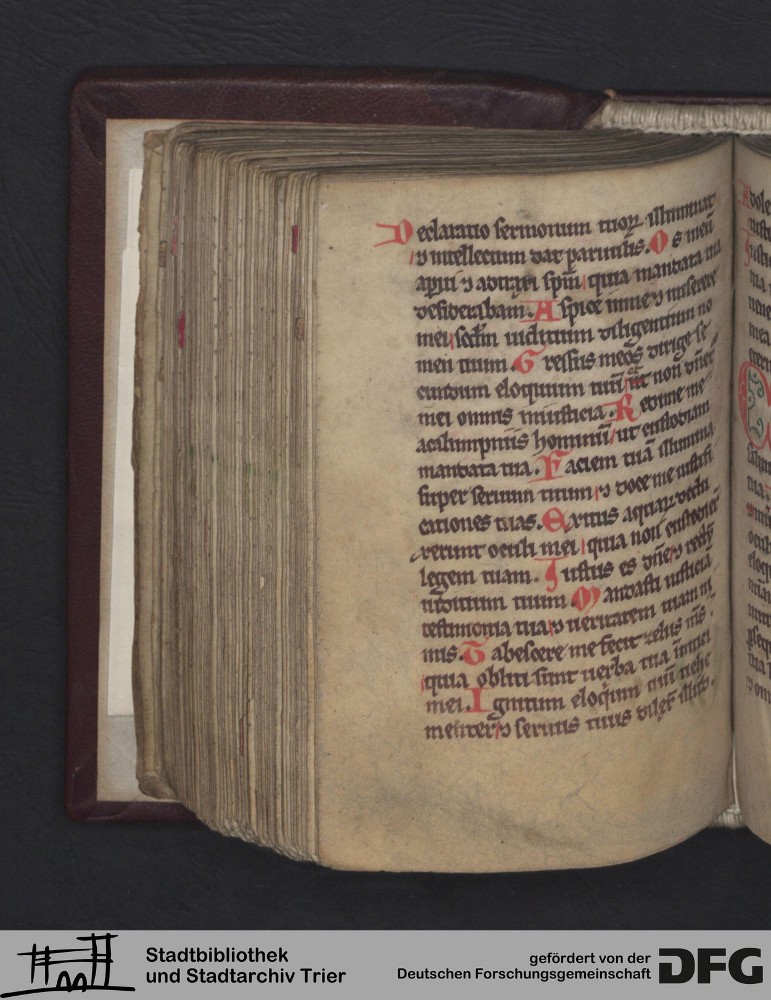 Declaratio sermonum tuoꝝ illuminat
⁊ intellectum dat paruulis. Os meũ
aꝑui ⁊ adtraxi spm̃ quia mandata tua
desiderabam. Aspice in me ⁊ miserere
mei scd̃m iudicium diligentium no
men tuum. Gressus meos dirige se
cundum eloquium tuũ ut non dñet̃
mei omnis iniusticia. Redime me
a calumpniis hominũ ut custodiam
mandata tua. Faciem tuã illumina
super seruum tuum ⁊ doce me iustifi
cationes tuas. Exitus aquaꝝ dedu
xerunt oculi mei quia non custodier̃
legem tuam. Iustus es dñe ⁊ rectũ
iudicium tuum. Mandasti iusticiã
testimonia tua ⁊ ueritatem tuam ni
mis. Tabescere me fecit zelus ms̃
quia obliti sunt uerba tua inimici
mei. Ignitum eloqium tuũ uehe
menter ⁊ seruus tuus dilex̃ illud.
Stadtbibliothek
und Stadtarchiv Trier
gefördert von der
Deutschen Forschungsgemeinschaft
DFG